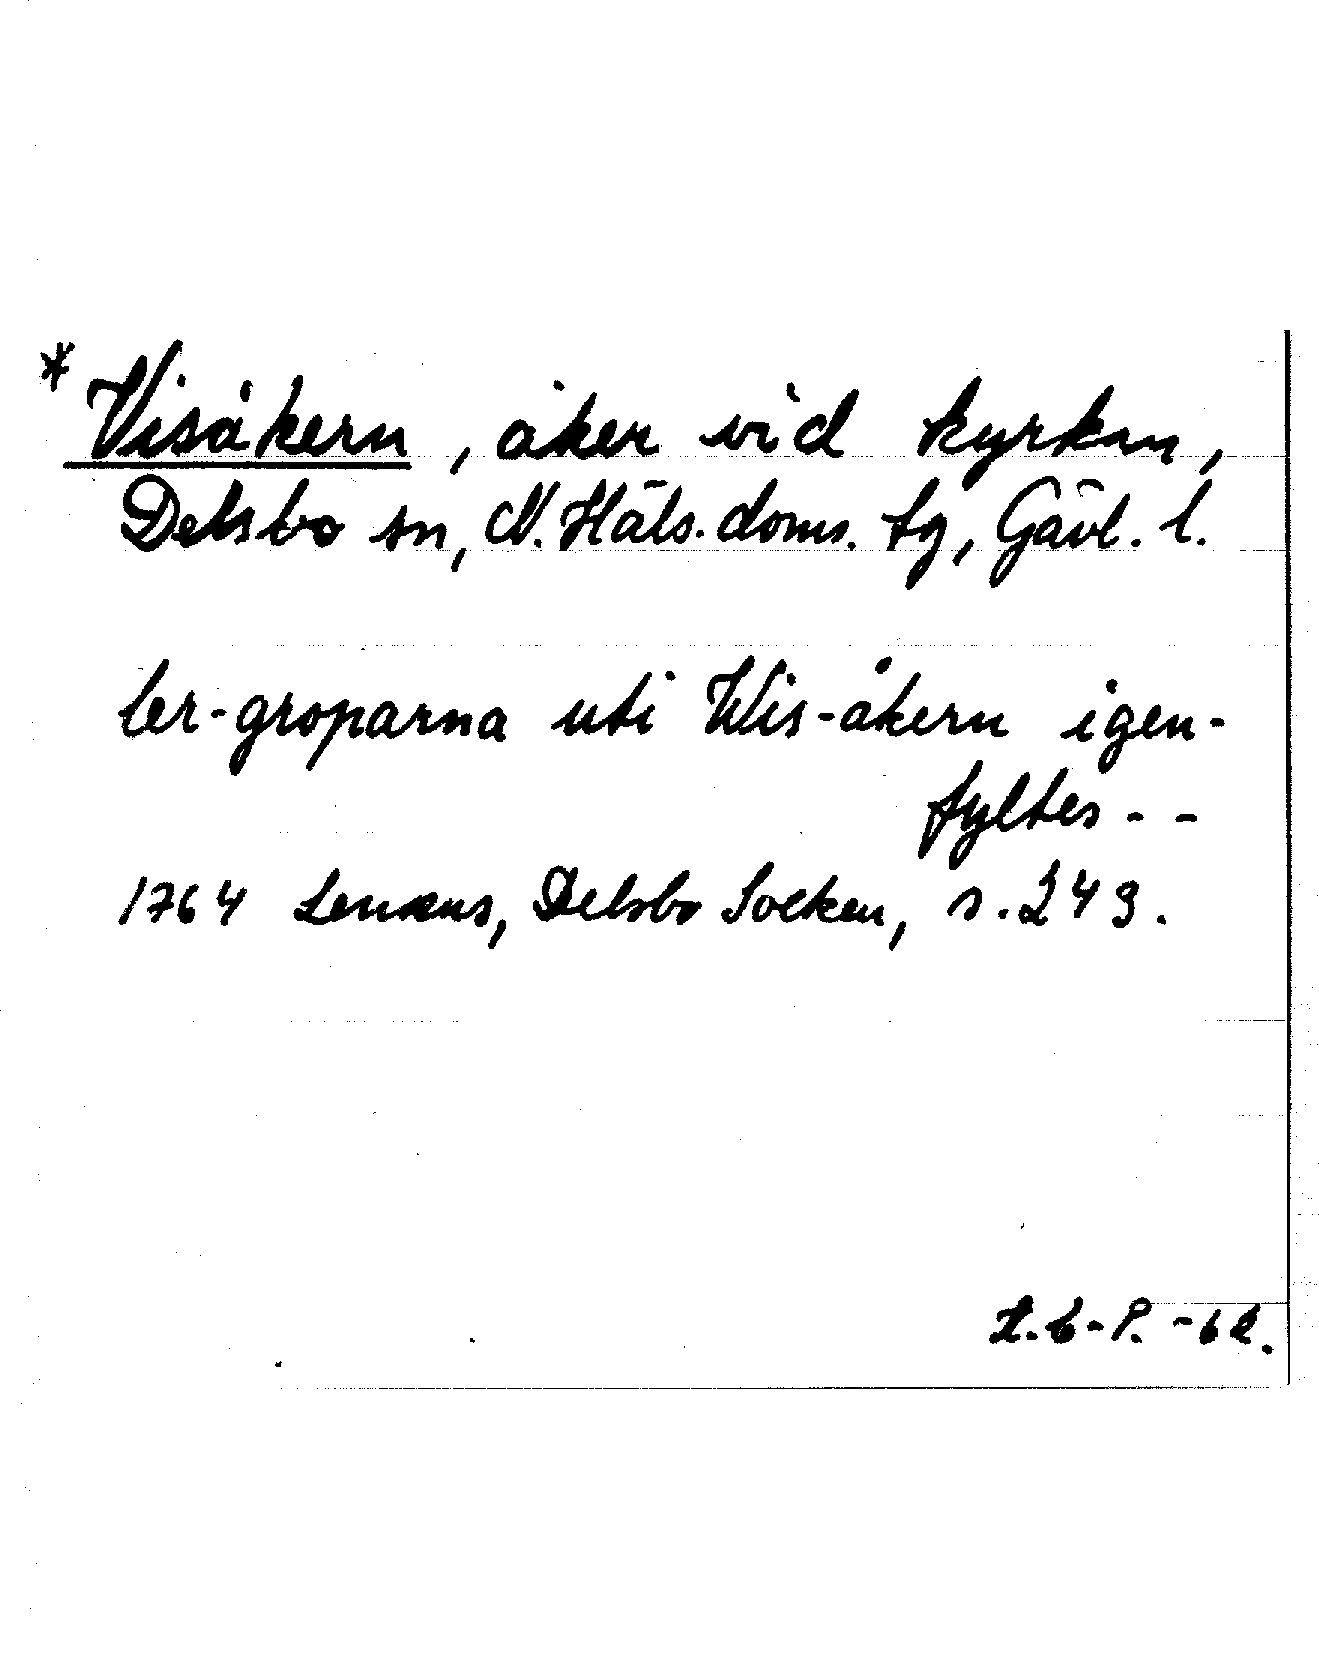 * Visåkern, åker vid kyrkan,
Delsbo sn, N. Häls. doms. tg, Gävl. l.
ler-groparna uti Wis-åkern igen-
fyltes - -
1764 Lenæus, Delsbo Socken, s. 249.
L.C-P. -62.